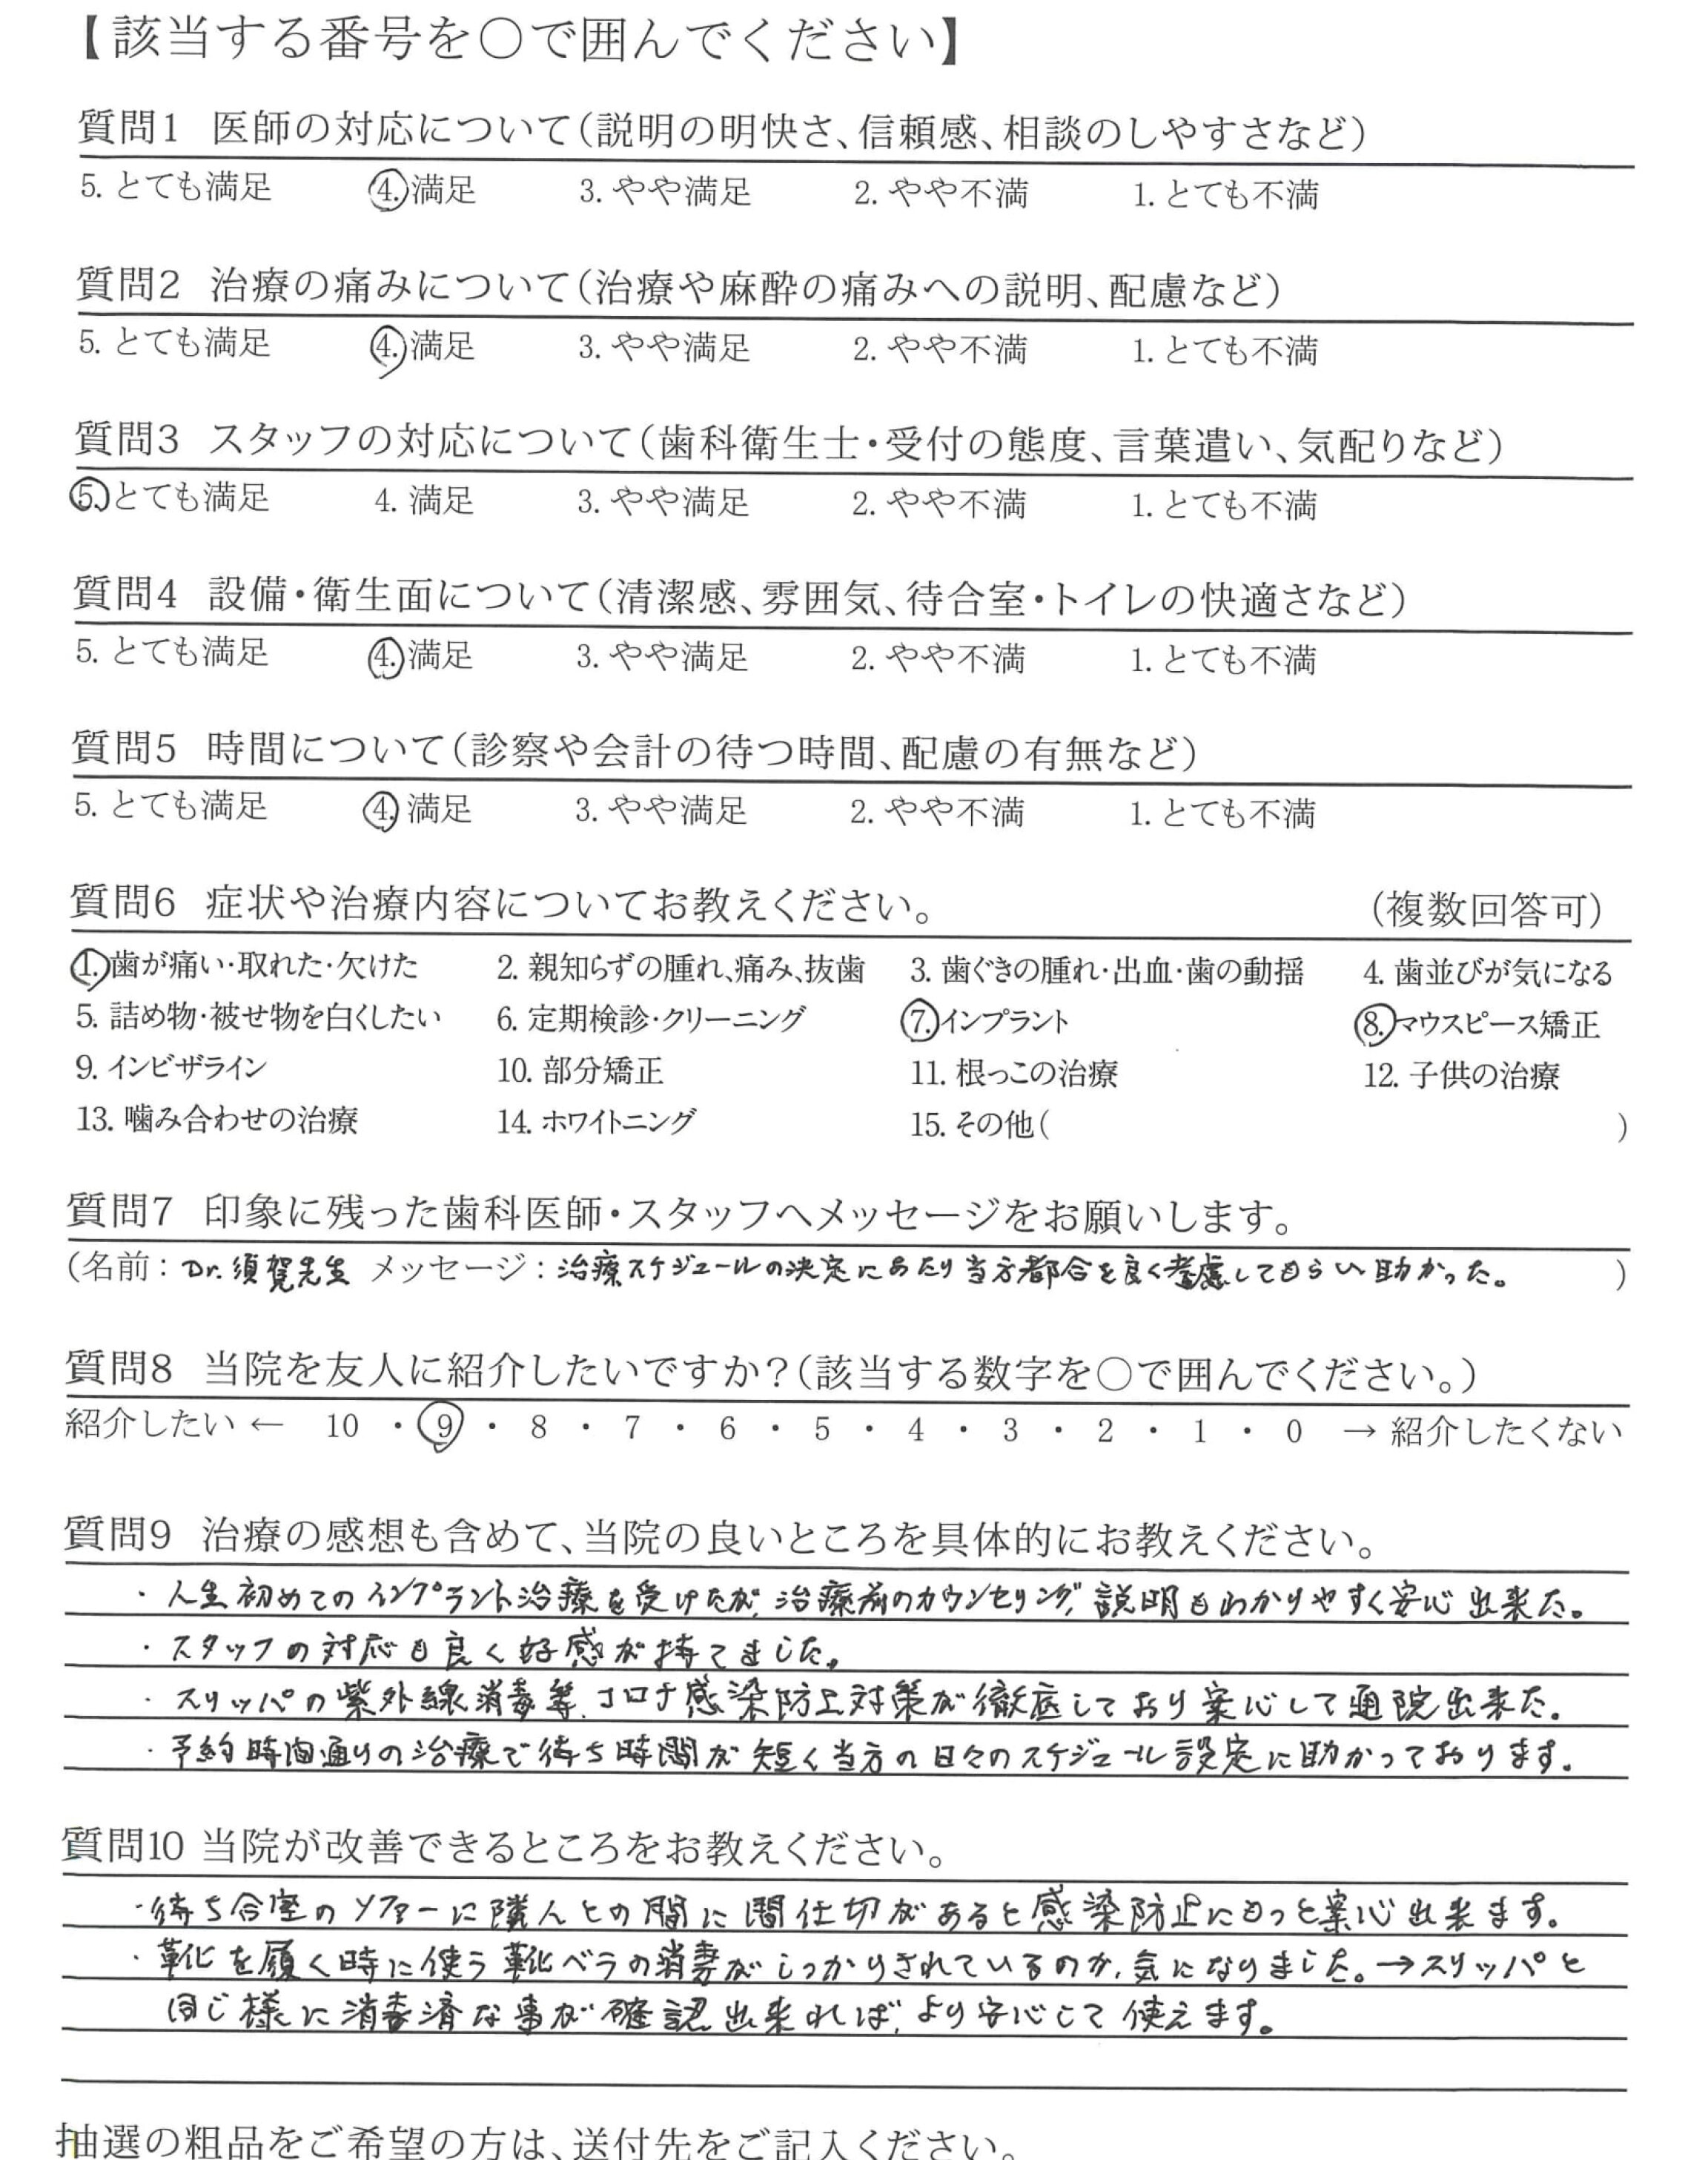 【該当する番号を○で囲んでください】
質問1 医師の対応について(説明の明快さ、信頼感、相談のしやすさなど)
5. とても満足 4. 満足 3. やや満足 2. やや不満 1. とても不満
質問2 治療の痛みについて(治療や麻酔の痛みへの説明、配慮など)
5. とても満足 4. 満足 3. やや満足 2. やや不満 1. とても不満
質問3 スタッフの対応について(歯科衛生士・受付の態度、言葉遣い、気配りなど)
5. とても満足 4. 満足 3. やや満足 2. やや不満 1. とても不満
質問4 設備・衛生面について(清潔感、雰囲気、待合室・トイレの快適さなど)
5. とても満足 4. 満足 3. やや満足 2. やや不満 1. とても不満
質問5 時間について(診察や会計の待つ時間、配慮の有無など)
5. とても満足 4. 満足 3. やや満足 2. やや不満 1. とても不満
質問6 症状や治療内容についてお教えください。 (複数回答可)
1. 歯が痛い・取れた・欠けた 2. 親知らずの腫れ、痛み、抜歯 3. 歯ぐきの腫れ・出血・歯の動揺 4. 歯並びが気になる
5. 詰め物・被せ物を白くしたい 6. 定期検診・クリーニング 7. インプラント 8. マウスピース矯正
9. インビザライン 10. 部分矯正 11. 根っこの治療 12. 子供の治療
13. 噛み合わせの治療 14. ホワイトニング 15. その他( )
質問7 印象に残った歯科医師・スタッフへメッセージをお願いします。
(名前 : Dr. 須賀先生 メッセージ : 治療スケジュールの決定にあたり当方都合を良く考慮してもらい助かった。 )
質問8 当院を友人に紹介したいですか?(該当する数字を○で囲んでください。)
紹介したい ← 10 ・ 9 ・ 8 ・ 7 ・ 6 ・ 5 ・ 4 ・ 3 ・ 2 ・ 1 ・ 0 → 紹介したくない
質問9 治療の感想も含めて、当院の良いところを具体的にお教えください。
・人生初めてのインプラント治療を受けたが、治療前のカウンセリング、説明もわかりやすく安心出来た。
・スタッフの対応も良く好感が持てました。
・スリッパの紫外線消毒等、コロナ感染防止対策が徹底しており安心して通院出来た。
・予約時間通りの治療で待ち時間が短く当方の日々のスケジュール設定に助かっております。
質問10 当院が改善できるところをお教えください。
・待ち合室のソファーに隣人との間に間仕切があると感染防止にもっと安心出来ます。
・靴を履く時に使う靴ベラの消毒がしっかりされているのか、気になりました。→スリッパと
同じ様に消毒済な事が確認出来れば、より安心して使えます。
抽選の粗品をご希望の方は、送付先をご記入ください。